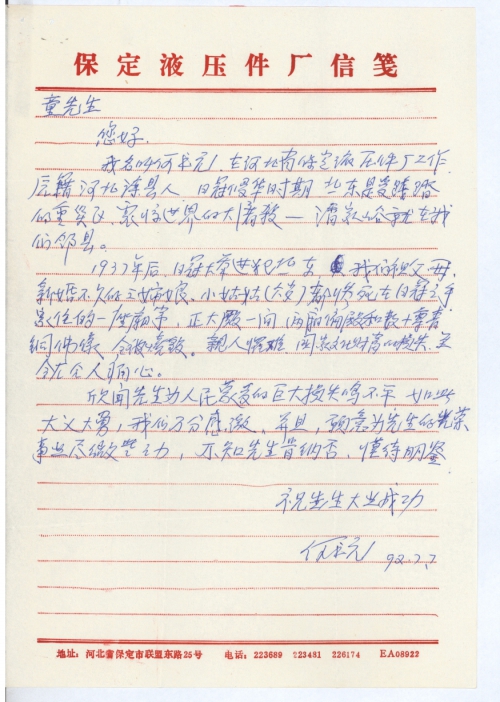 保定液压件厂信笺
童先生
您好.
我名叫何 元, 在河北省保定液压件厂工作
原籍河北 县人 日寇侵华时期 冀东是受蹂躏
的重灾区, 震惊世界的大屠杀— 潘家峪就在我
们邻县。
1937年后, 日寇大举进犯 , 我们祖父母,
新婚不久的三姑 , 小姑姑(六岁)都惨死在日寇之手
家住的一座庙宇, 正大殿一间 两厢偏殿和数十尊青
铜佛像, 全被 毁. 亲人 难 国家文化财富的损失, 至
今 令人痛心。
欣闻先生为人民蒙受的巨大损失鸣不平 如此
大义大勇, 我们万分感激, 并且, 愿意为先生的光荣
事业尽微 之力, 不知先生肯纳否, 谨待明鉴
祝先生大业成功
何 元 92.7.7.
地址：河北省保定市联盟东路25号 电话：223689 223481 226174 EA08922